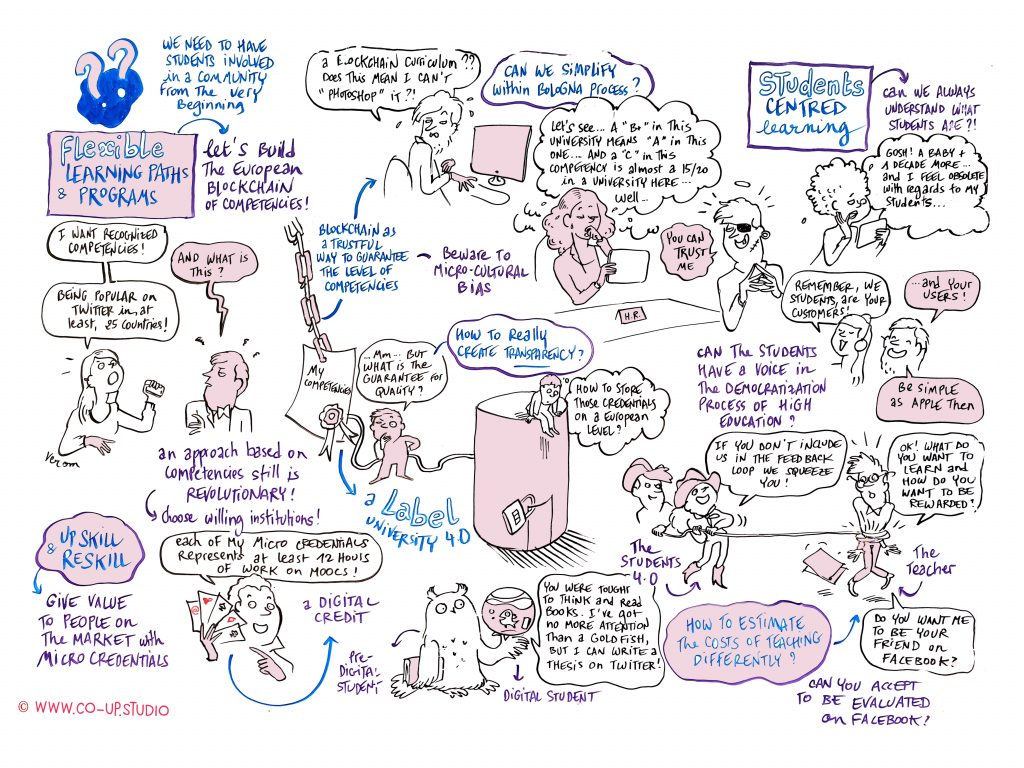 ??
WE NEED TO HAVE
STUDENTS INVOLVED
in a COMMUNITY
FROM THE VERY
Beginning
Flexible
LEARNING PATHS
& PROGRAMS
Let's Build
The EUROPEAN
BLOCKCHAIN
OF COMPETENCIES!
a BLOCKCHAIN CURRICULUM??
DOES THIS MEAN I CAN'T
"PHOTOSHOP" IT?!
CAN WE SIMPLIFY
within BOLOGNA PROCESS?
Let's see... A "B+" in This
UNIVERSITY MEANS "A" in THIS
ONE... AND a "C" in THIS
COMPETENCY is almost a 15/20
in a UNIVERSITY HERE...
Well...
Students
CENTRED
learning
can WE ALWAYS
UNDERSTAND WHAT
STUDENTS ARE?!
GOSH! A BABY +
A DECADE MORE...
and I FEEL OBSOLETE
with regards to MY
Students...
I WANT RECOGNIZED
COMPETENCIES!
AND WHAT is
This?
BEING POPULAR on
TWITTER in at
least, 25 COUNTRIES!
Verom
BLOCKCHAIN as
a TRUSTFUL
WAY TO GUARANTEE
THE LEVEL OF
COMPETENCIES
BEWARE TO
MICRO-CULTURAL
BIAS
YOU CAN
TRUST
ME
H.R.
REMEMBER, WE
STUDENTS, are YOUR
CUSTOMERS!
...and YOUR
USERS!
BE SIMPLE
as APPLE THEN
CAN THE STUDENTS
HAVE A VOICE in
THE DEMOCRATIZATION
PROCESS OF HIGH
EDUCATION?
MY
COMPETENCIES
...Mm... BUT
WHAT is THE
GUARANTEE for
QUALITY?
HOW TO Really
CREATE TRANSPARENCY?
HOW TO STORE
Those CREDENTIALS
on a EUROPEAN
LEVEL?
an approach based on
competencies still is
REVOLUTIONARY!
choose willing institutions!
a Label
UNIVERSITY 4.0
IF YOU DON'T INCLUDE
US IN THE FEEDBACK
LOOP WE SQUEEZE
YOU!
OK! WHAT DO
YOU WANT TO
LEARN and
HOW DO YOU
WANT TO BE
REWARDED?
The
STUDENTS
4.0
The
Teacher
UPSKILL
& RESKILL
GIVE VALUE
TO PEOPLE on
THE MARKET with
MICRO CREDENTIALS
each of MY MICRO CREDENTIALS
Represents at least 12 HOURS
OF WORK on MOOCS!
a DIGITAL
CREDIT
PRE-
DIGITAL
STUDENT
DIGITAL STUDENT
YOU WERE TOUGHT
TO THINK and READ
BOOKS. I'VE GOT
NO MORE ATTENTION
Than a GOLDFISH,
BUT I CAN WRITE a
THESIS on TWITTER!
HOW TO ESTIMATE
The COSTS OF TEACHING
DIFFERENTLY?
DO YOU WANT ME
TO BE YOUR
FRIEND on
FACEBOOK?
CAN YOU ACCEPT
TO BE EVALUATED
on FACEBOOK?
© WWW.CO-UP.STUDIO